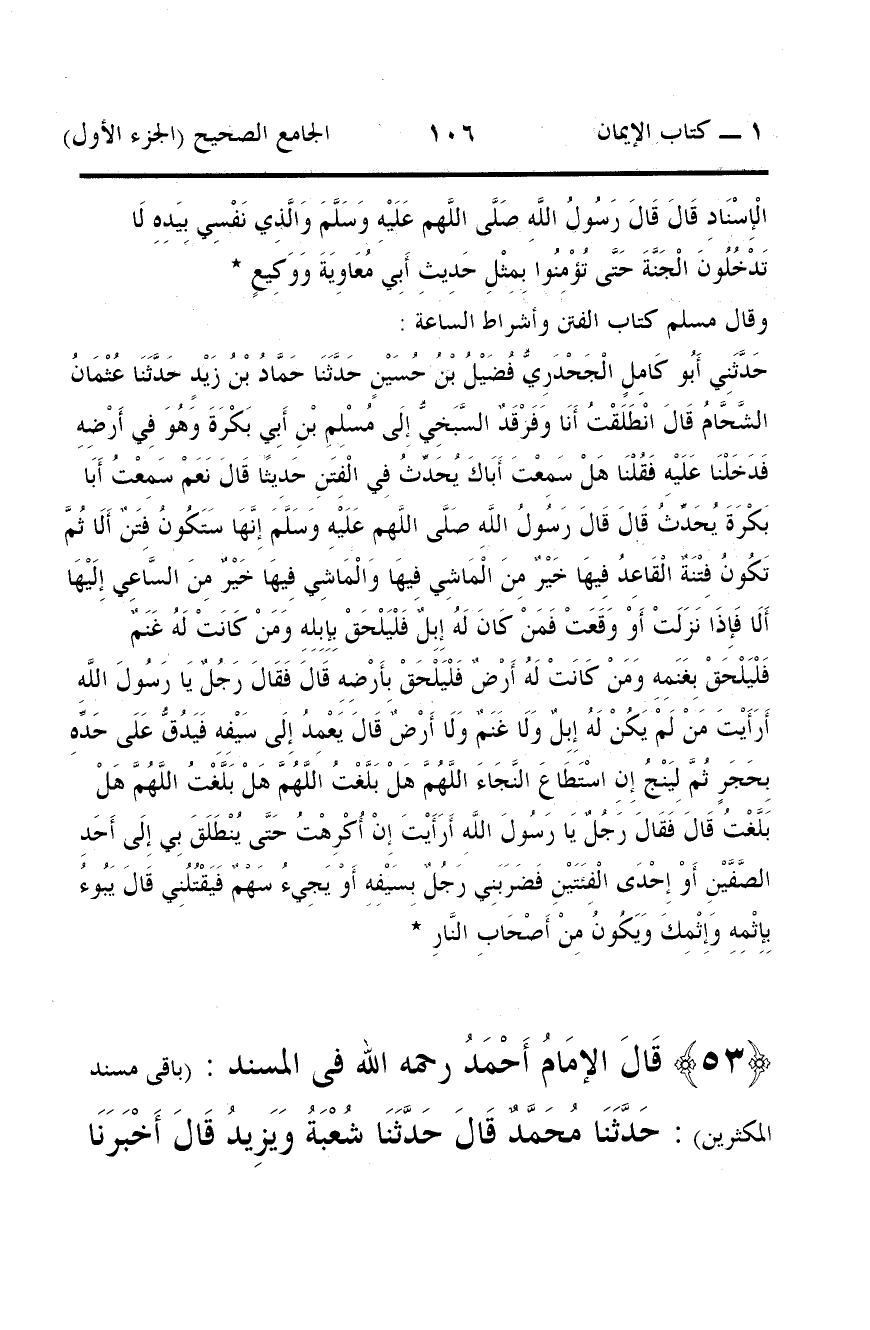 ١ ــ كتاب الإيمان ١٠٦ الجامع الصحيح (الجزء الأول)
الْإِسْنَادِ قَالَ قَالَ رَسُولُ اللَّهِ صَلَّى اللَّهم عَلَيْهِ وَسَلَّمَ وَالَّذِي نَفْسِي بِيَدِهِ لَا
تَدْخُلُونَ الْجَنَّةَ حَتَّى تُؤْمِنُوا بِمِثْلِ حَدِيثِ أَبِي مُعَاوِيَةَ وَوَكِيعٍ *
وقال مسلم كتاب الفتن وأشراط الساعة :
حَدَّثَنِي أَبُو كَامِلٍ الْجَحْدَرِيُّ فُضَيْلُ بْنُ حُسَيْنٍ حَدَّثَنَا حَمَّادُ بْنُ زَيْدٍ حَدَّثَنَا عُثْمَانُ
الشَّحَّامُ قَالَ انْطَلَقْتُ أَنَا وَفَرْقَدٌ السَّبَخِيُّ إِلَى مُسْلِمِ بْنِ أَبِي بَكْرَةَ وَهُوَ فِي أَرْضِهِ
فَدَخَلْنَا عَلَيْهِ فَقُلْنَا هَلْ سَمِعْتَ أَبَاكَ يُحَدِّثُ فِي الْفِتَنِ حَدِيثًا قَالَ نَعَمْ سَمِعْتُ أَبَا
بَكْرَةَ يُحَدِّثُ قَالَ قَالَ رَسُولُ اللَّهِ صَلَّى اللَّهم عَلَيْهِ وَسَلَّمَ إِنَّهَا سَتَكُونُ فِتَنٌ أَلَا ثُمَّ
تَكُونُ فِتْنَةٌ الْقَاعِدُ فِيهَا خَيْرٌ مِنَ الْمَاشِي فِيهَا وَالْمَاشِي فِيهَا خَيْرٌ مِنَ السَّاعِي إِلَيْهَا
أَلَا فَإِذَا نَزَلَتْ أَوْ وَقَعَتْ فَمَنْ كَانَ لَهُ إِبِلٌ فَلْيَلْحَقْ بِإِبِلِهِ وَمَنْ كَانَتْ لَهُ غَنَمٌ
فَلْيَلْحَقْ بِغَنَمِهِ وَمَنْ كَانَتْ لَهُ أَرْضٌ فَلْيَلْحَقْ بِأَرْضِهِ قَالَ فَقَالَ رَجُلٌ يَا رَسُولَ اللَّهِ
أَرَأَيْتَ مَنْ لَمْ يَكُنْ لَهُ إِبِلٌ وَلَا غَنَمٌ وَلَا أَرْضٌ قَالَ يَعْمِدُ إِلَى سَيْفِهِ فَيَدُقُّ عَلَى حَدِّهِ
بِحَجَرٍ ثُمَّ لِيَنْجُ إِنِ اسْتَطَاعَ النَّجَاءَ اللَّهُمَّ هَلْ بَلَّغْتُ اللَّهُمَّ هَلْ بَلَّغْتُ اللَّهُمَّ هَلْ
بَلَّغْتُ قَالَ فَقَالَ رَجُلٌ يَا رَسُولَ اللَّهِ أَرَأَيْتَ إِنْ أُكْرِهْتُ حَتَّى يُنْطَلَقَ بِي إِلَى أَحَدِ
الصَّفَّيْنِ أَوْ إِحْدَى الْفِئَتَيْنِ فَضَرَبَنِي رَجُلٌ بِسَيْفِهِ أَوْ يَجِيءُ سَهْمٌ فَيَقْتُلُنِي قَالَ يَبُوءُ
بِإِثْمِهِ وَإِثْمِكَ وَيَكُونُ مِنْ أَصْحَابِ النَّارِ *
﴿٥٣﴾ قَالَ الإِمَامُ أَحْمَدُ رحمه الله فى المسند : (باقى مسند
المكثرين) : حَدَّثَنَا مُحَمَّدٌ قَالَ حَدَّثَنَا شُعْبَةُ وَيَزِيدُ قَالَ أَخْبَرَنَا